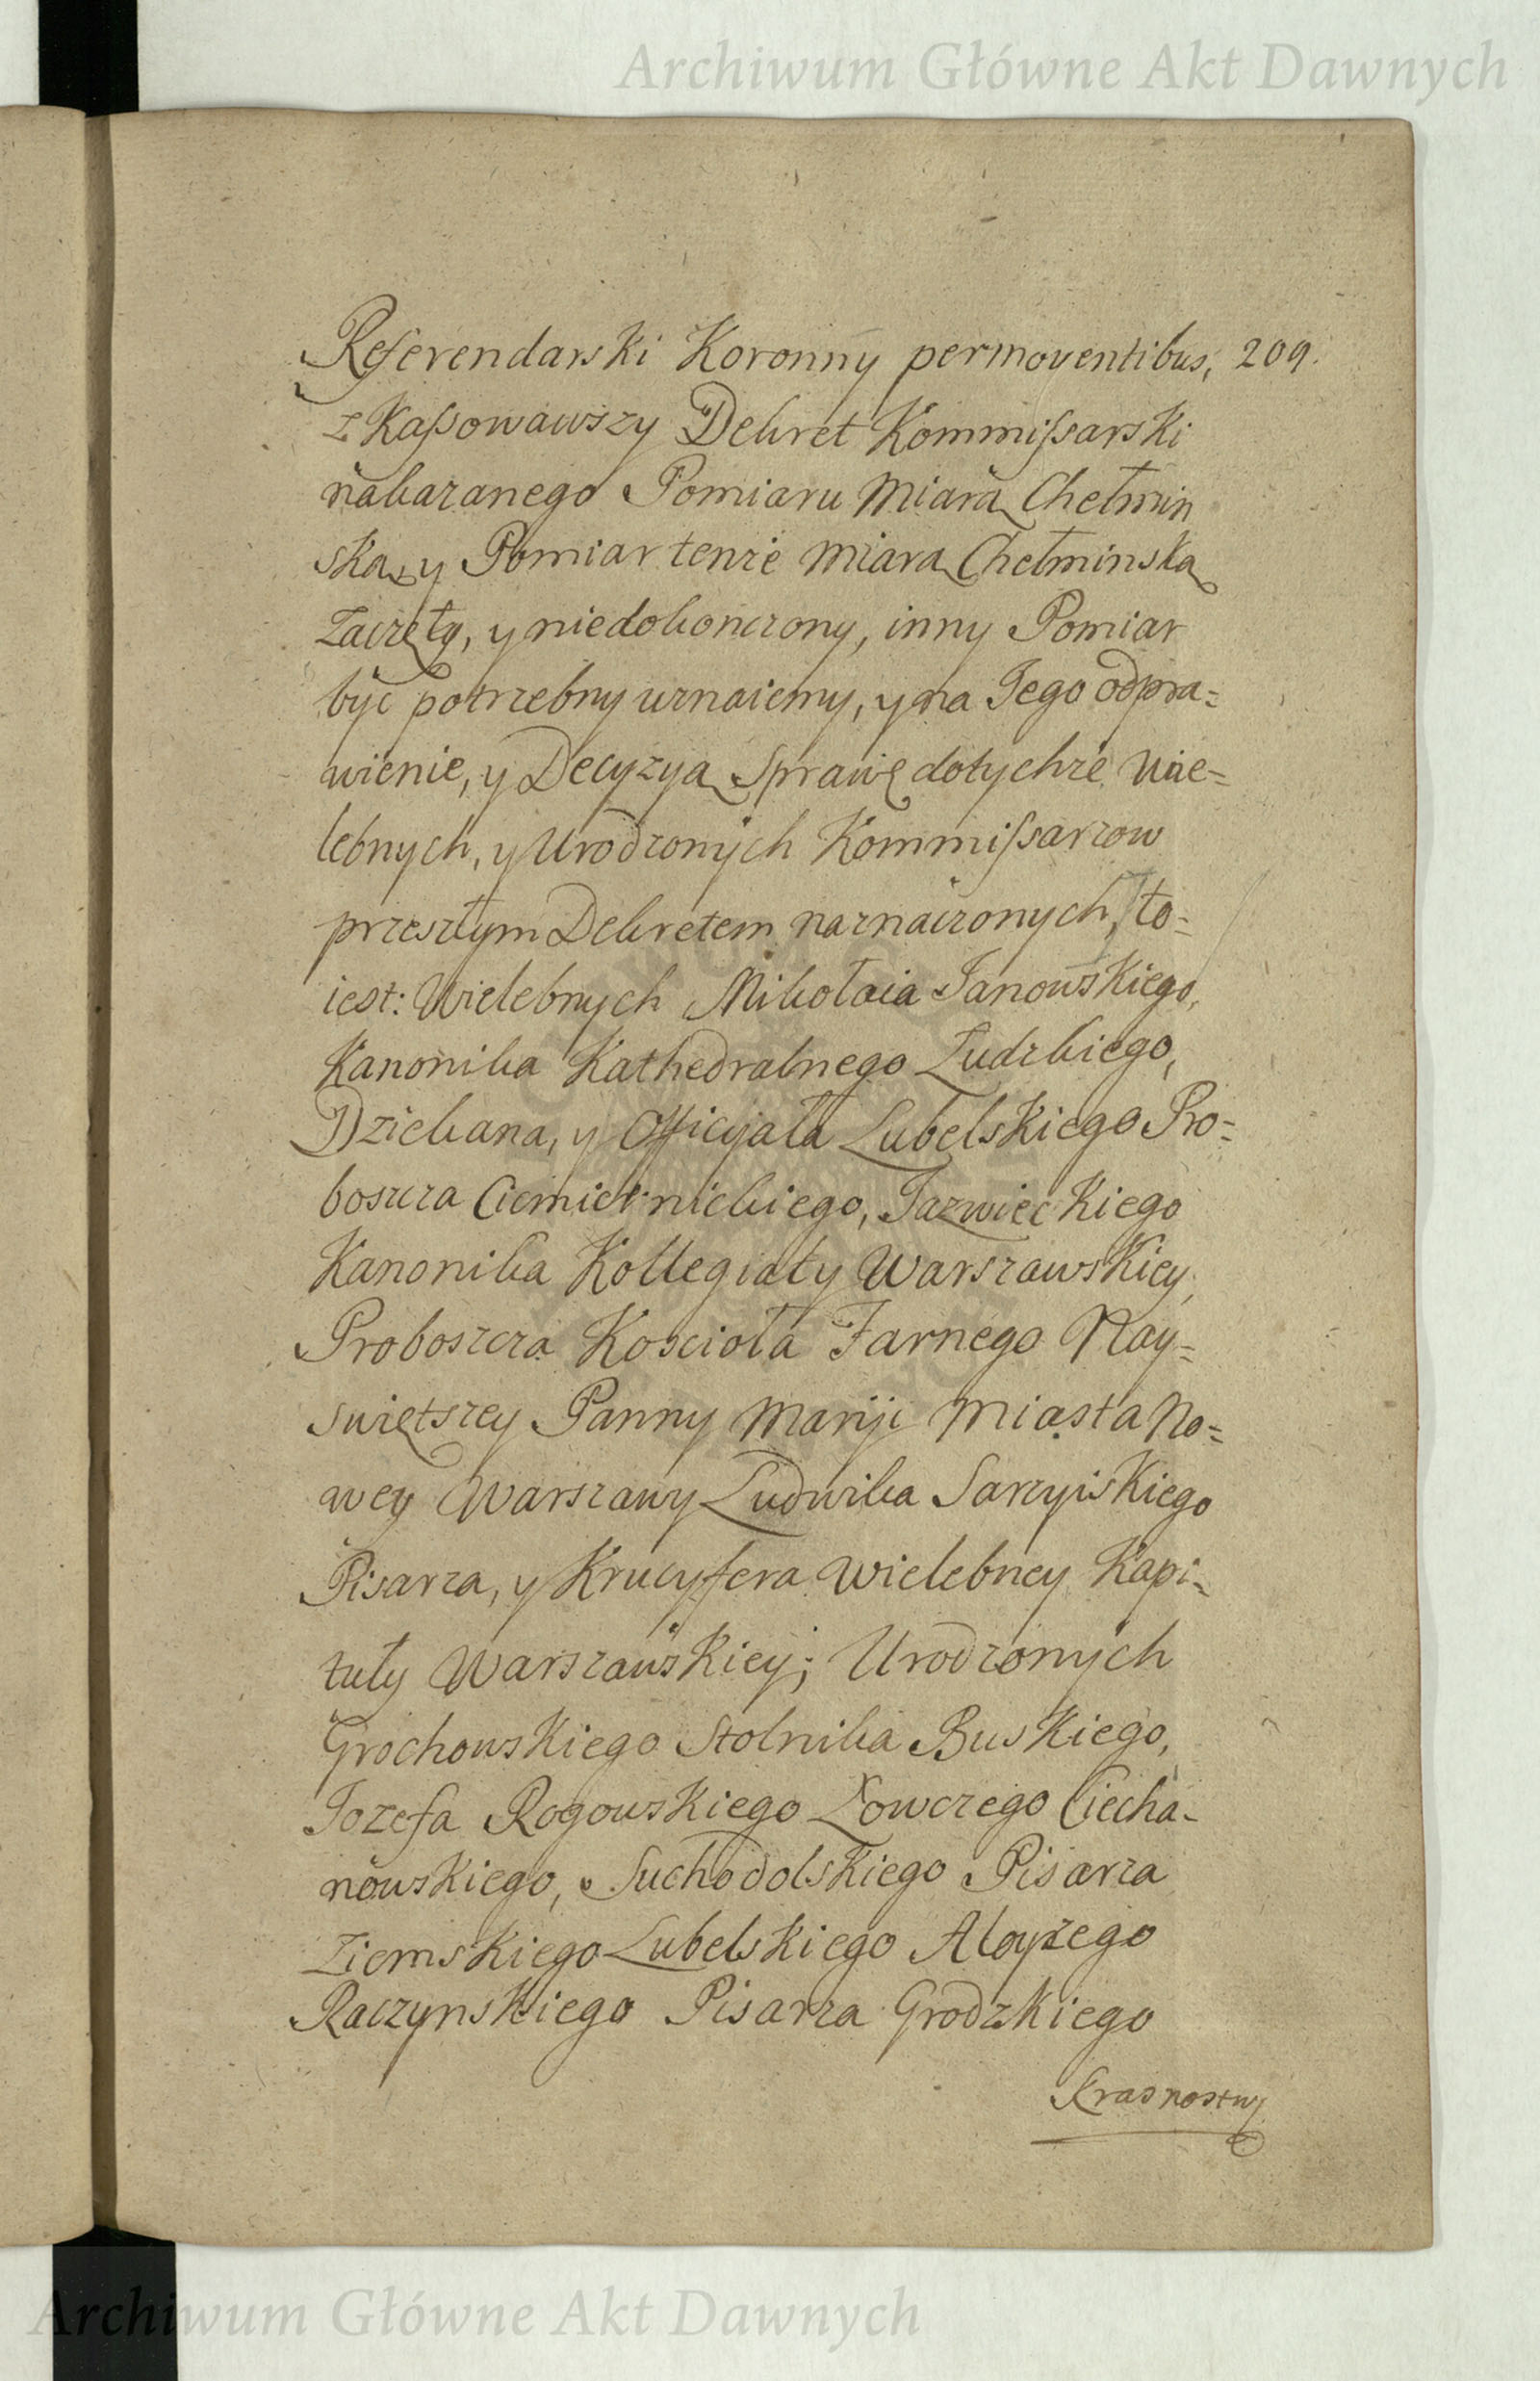 Archiwum Główne Akt Dawnych
Referendarski Koronny permoventibus, 209.
zKassowawszy Dekret Kommissarski
nakazanego Pomiaru Miarą Chełmin
ską, y Pomiar tenże Miarą Chełminską
zaczęty, y niedokonczony, inny Pomiar
być potrzebny uznaiemy, y na Jego odpra=
wienie, y Decyzyą Sprawę dotychże Wie=
lebnych, y Urodzonych Kommissarzow
przeszłym Dekretem naznaczonych, to=
iest: Wielebnych Mikołaia Janowskiego,
Kanonika Kathedralnego Łudzkiego,
Dziekana, y Officyała Lubelskiego Pro=
boszcza Ciemiernickiego, Jazwieckiego
Kanonika Kollegiaty Warszawskiey,
Proboszcza Koscioła Farnego Nay=
swiętszey Panny Maryi Miasta No=
wey Warszawy Ludwika Sarzyiskiego
Pisarza, y Krucyfera Wielebney Kapi=
tuły Warszawskiey; Urodzonych
Grochowskiego Stolnika Buskiego,
Jozefa Rogowskiego Łowczego Ciecha-
nowskiego, Suchodolskiego Pisarza
Ziemskiego Lubelskiego Aloyzego
Raczynskiego Pisarza Grodzkiego
Krasnostw
Archiwum Główne Akt Dawnych